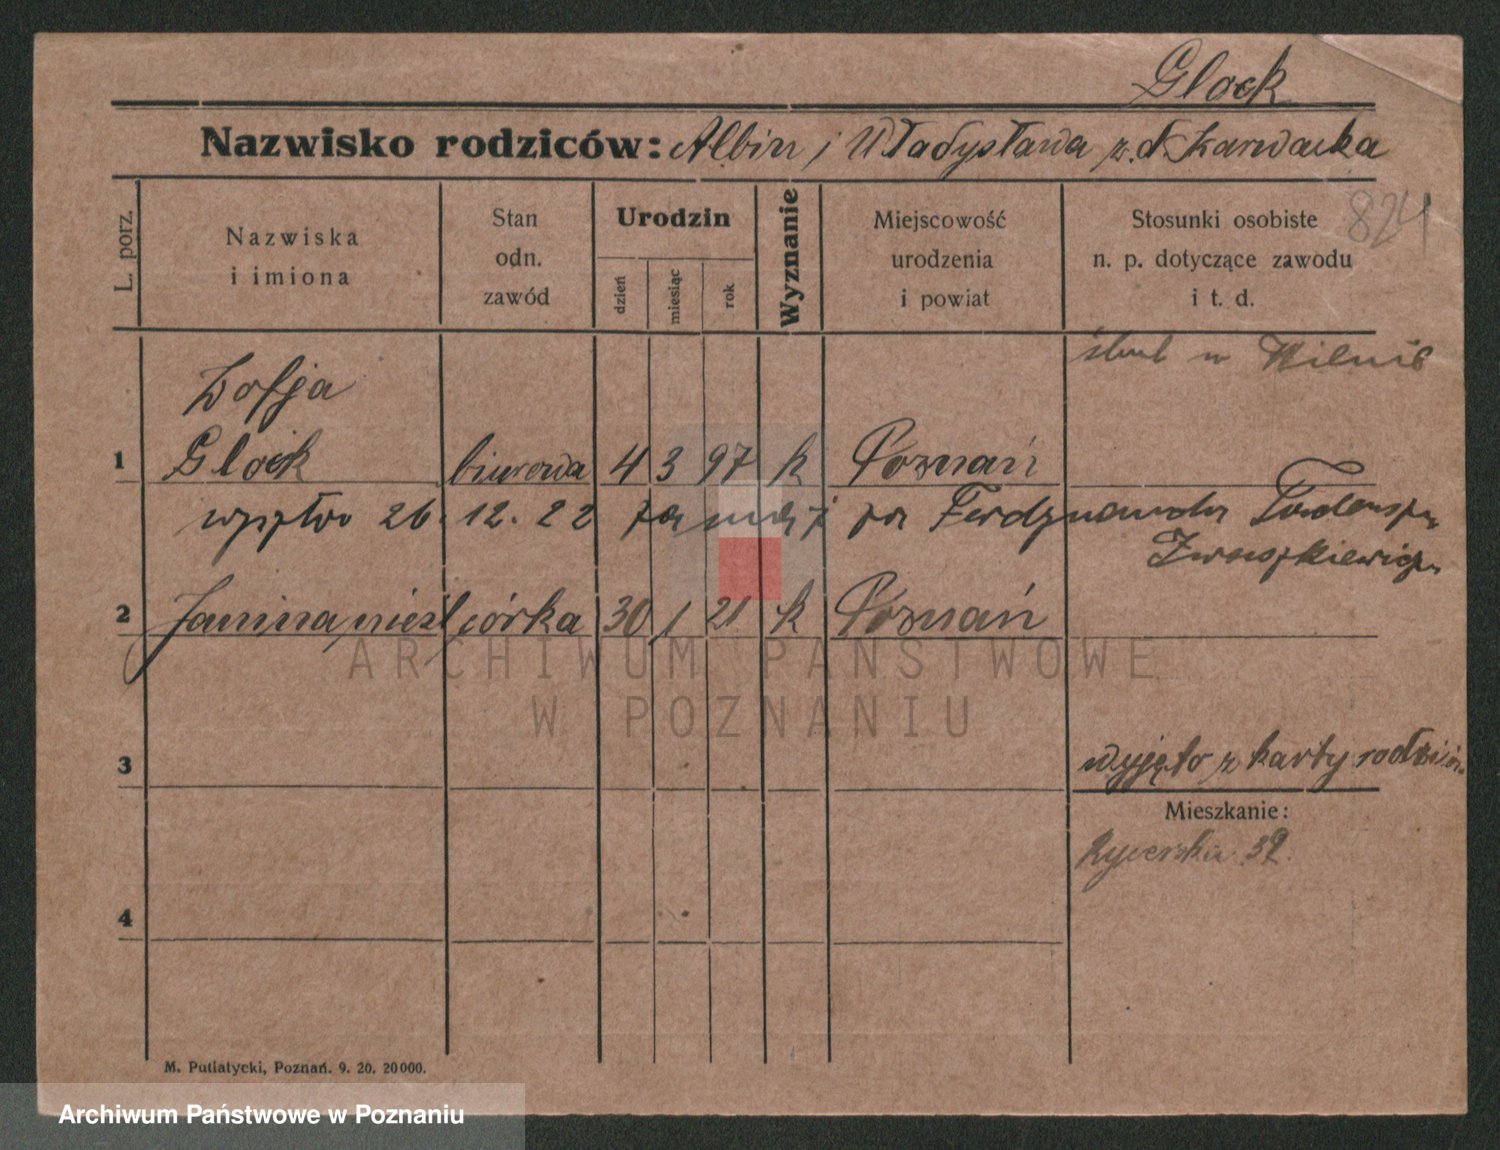 Glock
Nazwisko rodziców: Albin i Władysława z. d. Karwacka
824
L. porz.
Nazwiska
i imiona
Stan
odn.
zawód
Urodzin
dzień
miesiąc
rok
Wyznanie
Miejscowość
urodzenia
i powiat
Stosunki osobiste
n. p. dotyczące zawodu
i t. d.
ślub w Wilnie
Zofja
1 Glock biurowa 4 3 97 k Poznań
wyszła 26. 12. 22 za mąż za Ferdynanda Tadeusza
Iwaszkiewicza
2 Janina nieśl córka 30 1 21 k Poznań
ARCHIWUM PAŃSTWOWE
W POZNANIU
wyjęto z karty rodziców
3
Mieszkanie:
Rycerska 39.
4
M. Putiatycki, Poznań. 9. 20. 20000.
Archiwum Państwowe w Poznaniu